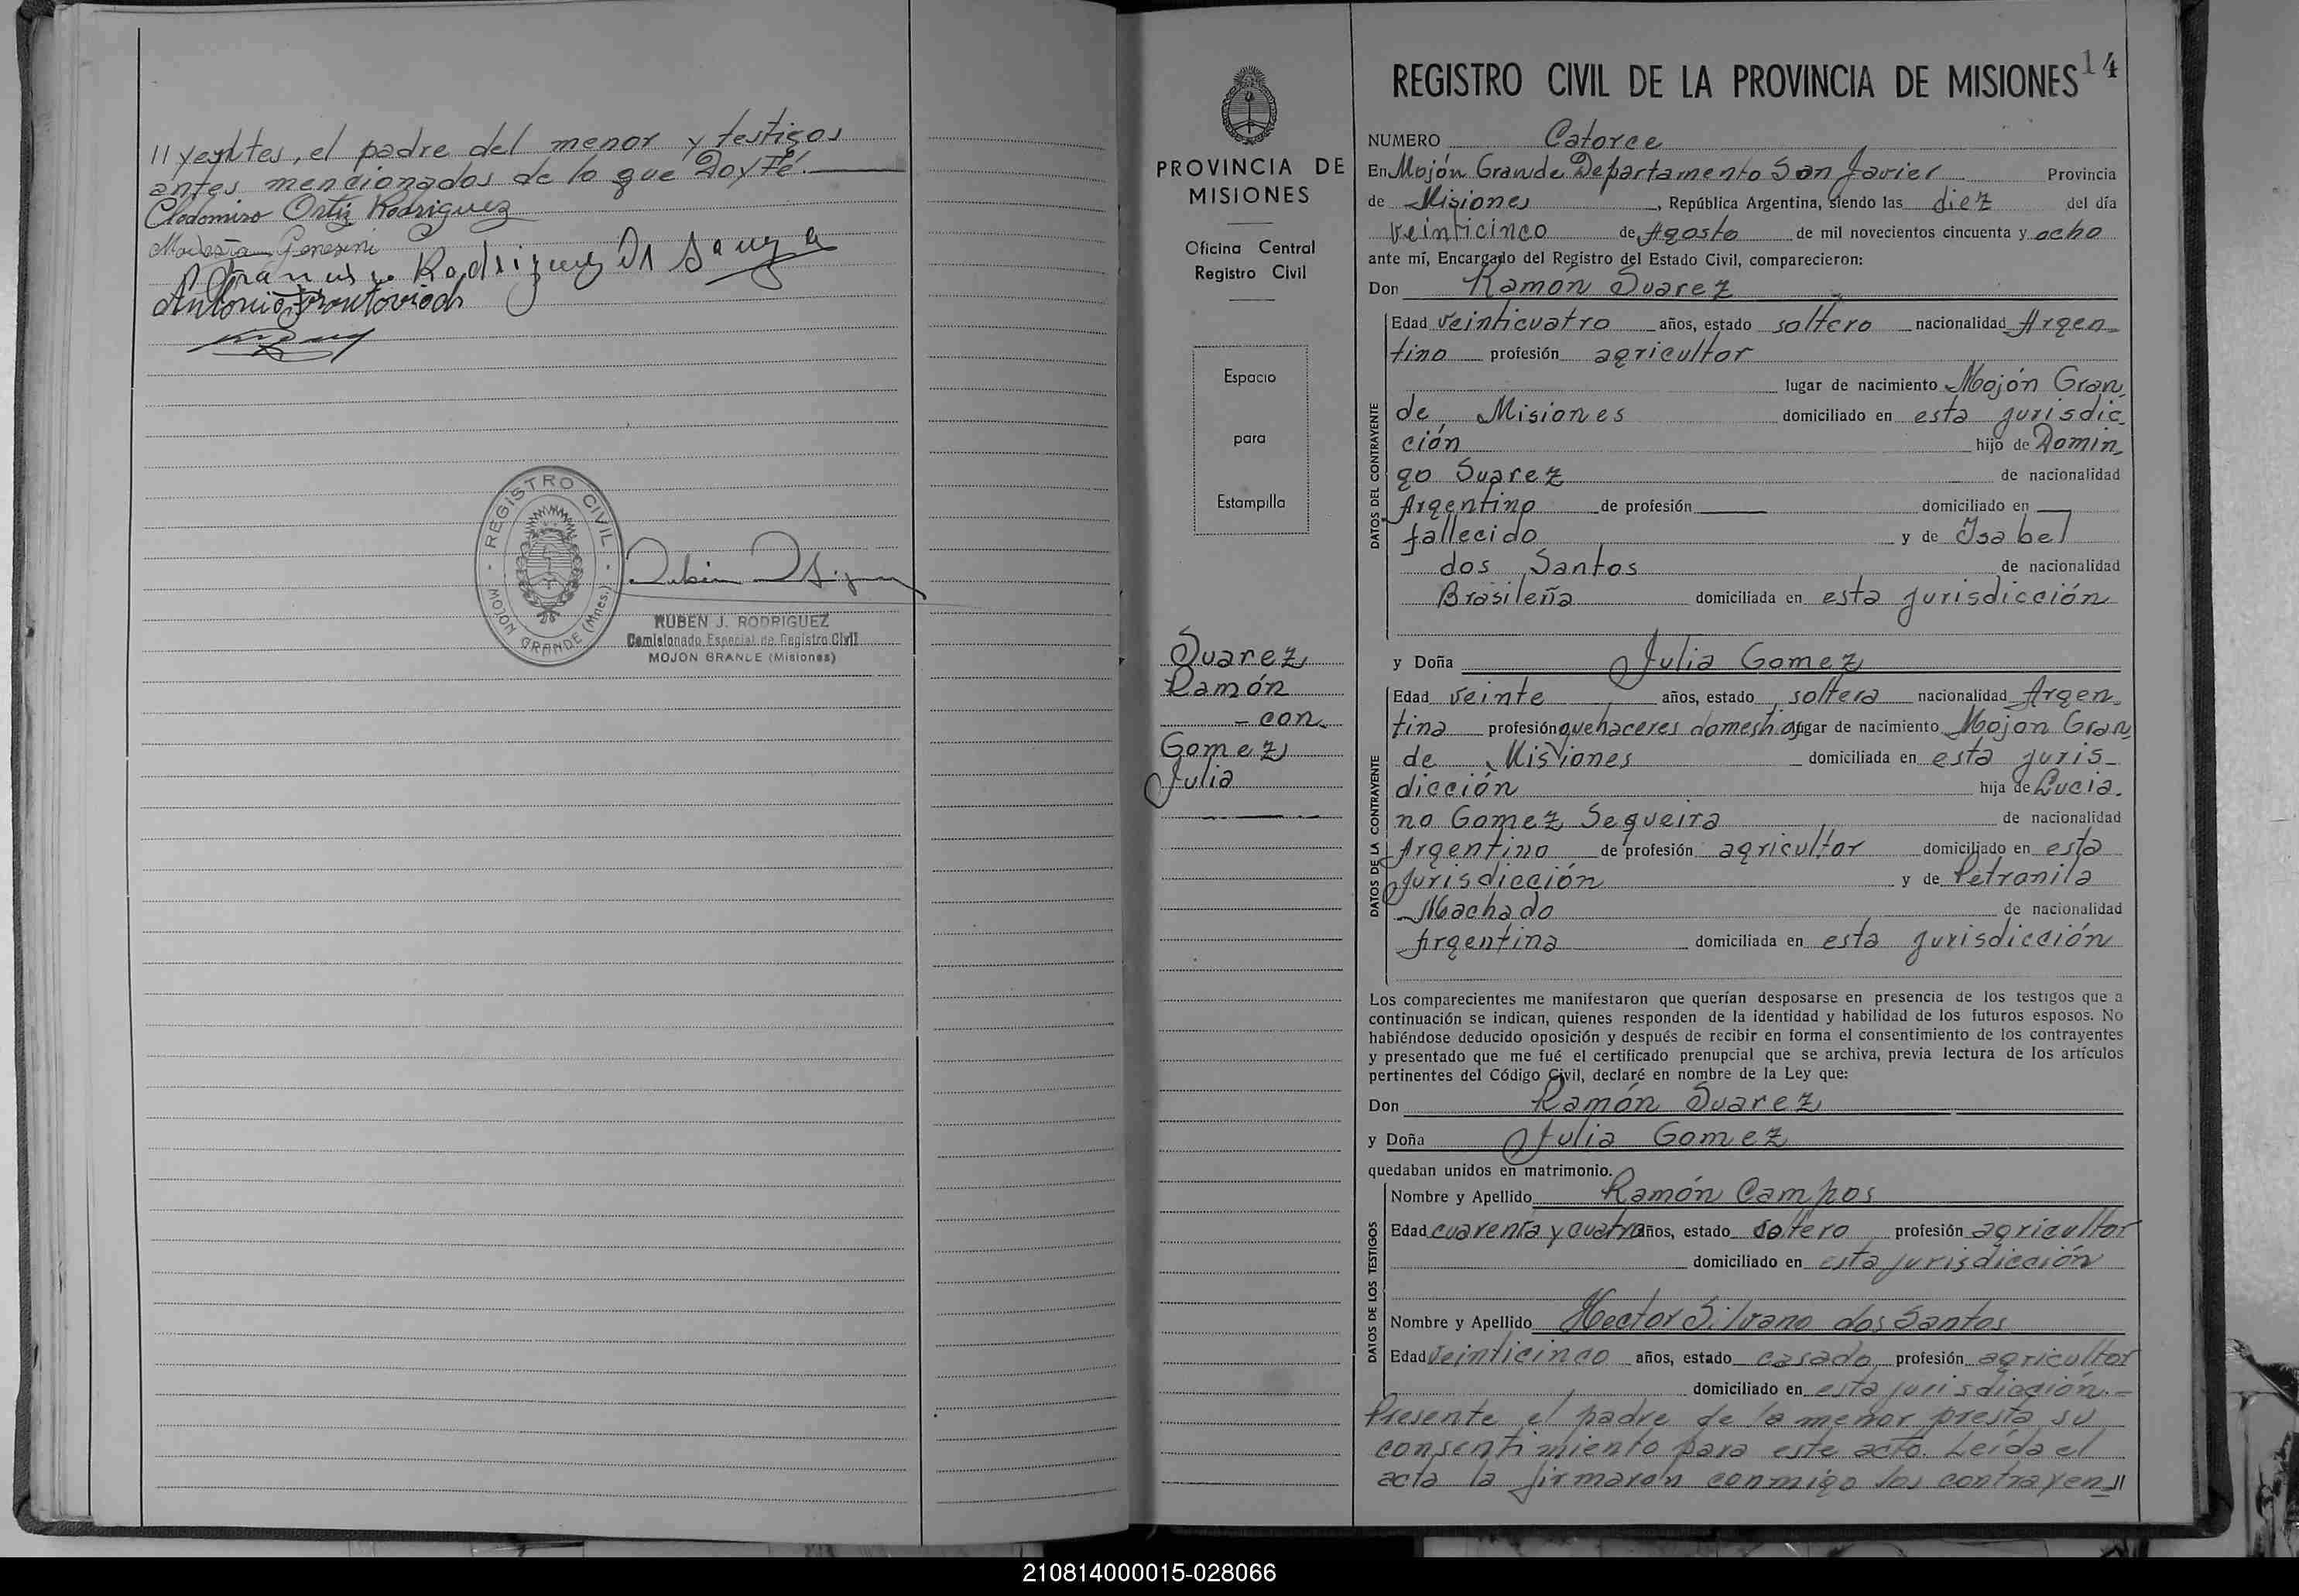 antes mencionados de lo que Doy Fé.
Clodomiro Ortiz Rodriguez
Rodriguez
Antonio
REGISTRO CIVIL
MOJON GRANDE (Mnes.)
RUBEN J. RODRIGUEZ
Comisionado Especial de Registro Civil
MOJON GRANDE (Misiones)
PROVINCIA DE
MISIONES
Oficina Central
Registro Civil
Espacio
para
Estampilla
Suarez
Ramón
- con -
Gomez
Julia
14
REGISTRO CIVIL DE LA PROVINCIA DE MISIONES
NUMERO Catorce
En Mojón Grande Departamento San Javier Provincia
de Misiones, República Argentina, siendo las diez del día
veinticinco de Agosto de mil novecientos cincuenta y ocho
ante mí, Encargado del Registro del Estado Civil, comparecieron:
Don Ramón Suarez
DATOS DEL CONTRAYENTE
Edad veinticuatro años, estado soltero nacionalidad Argen-
tino profesión agricultor
lugar de nacimiento Mojón Gran-
de Misiones domiciliado en esta jurisdic-
ción hijo de Domin-
go Suarez de nacionalidad
Argentino de profesión domiciliado en
fallecido y de Isabel
dos Santos de nacionalidad
Brasileña domiciliada en esta jurisdicción
y Doña Julia Gomez
DATOS DE LA CONTRAYENTE
Edad veinte años, estado soltera nacionalidad Argen-
tina profesión quehaceres domesticos lugar de nacimiento Mojon Gran-
de Misiones domiciliada en esta juris-
dicción hija de Lucia-
no Gomez Sequeira de nacionalidad
Argentino de profesión agricultor domiciliado en esta
Jurisdicción y de Petronila
Machado de nacionalidad
Argentina domiciliada en esta jurisdicción
Los comparecientes me manifestaron que querían desposarse en presencia de los testigos que a
continuación se indican, quienes responden de la identidad y habilidad de los futuros esposos. No
habiéndose deducido oposición y después de recibir en forma el consentimiento de los contrayentes
y presentado que me fué el certificado prenupcial que se archiva, previa lectura de los artículos
pertinentes del Código Civil, declaré en nombre de la Ley que:
Don Ramón Suarez
y Doña Julia Gomez
quedaban unidos en matrimonio.
DATOS DE LOS TESTIGOS
Nombre y Apellido Ramón Campos
Edad cuarenta y cuatro años, estado soltero profesión agricultor
domiciliado en esta jurisdicción
Nombre y Apellido Hector Silvano dos Santos
Edad veinticinco años, estado casado profesión agricultor
domiciliado en esta jurisdicción.-
Presente el padre de la menor presta su
consentimiento para este acto. Leída el
acta la firmaron conmigo los contrayen//
210814000015-028066